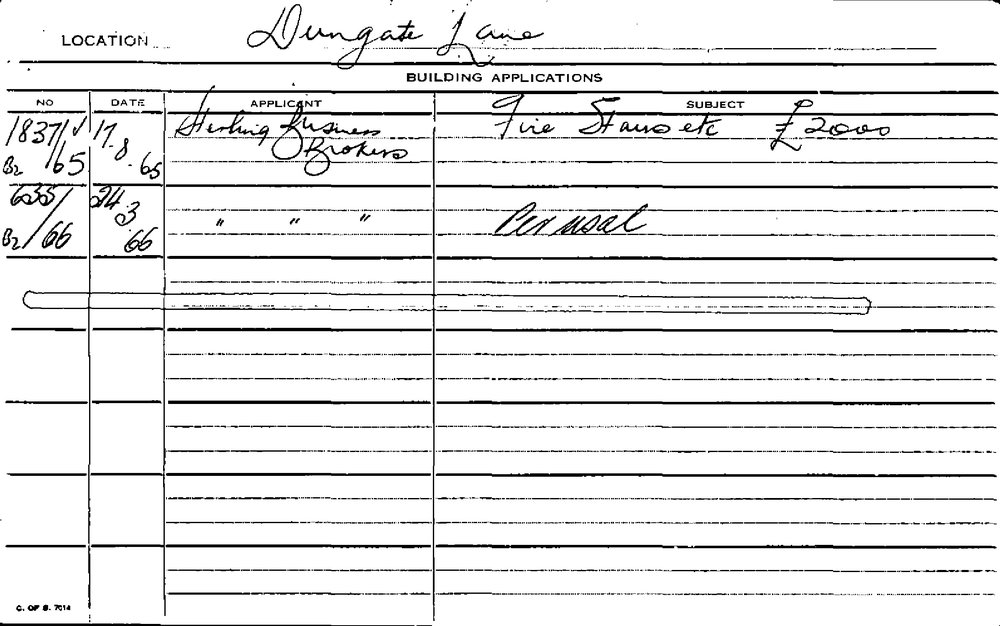 LOCATION Dungate Lane
BUILDING APPLICATIONS
NO DATE APPLICANT SUBJECT
1837/ 17. Sterling Business Fire Stairs etc £2000
B2 /65 8.65 Brokers
635/ 24
B2/66 3.66 " " " Perusal
C. OF S. 7014